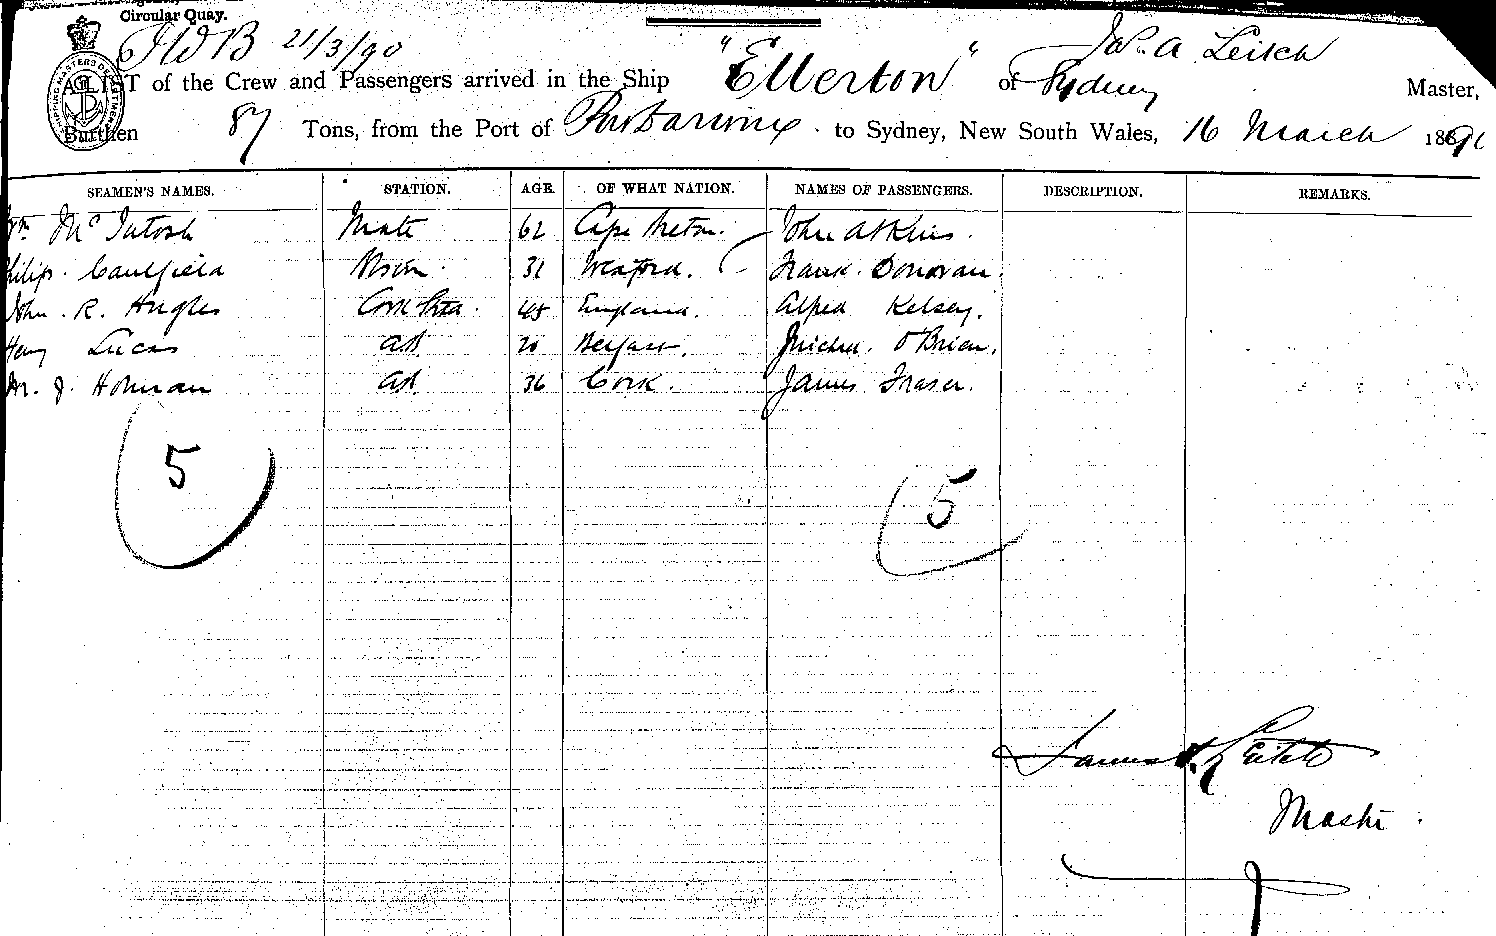 Circular Quay.
JWB 21/3/90
Jas. A Leitch
A LIST of the Crew and Passengers arrived in the Ship "Ellerton" of Sydney Master,
Burthen 87 Tons, from the Port of Port Darwin to Sydney, New South Wales, 16 March 1890
SEAMEN'S NAMES. STATION. AGE. OF WHAT NATION. NAMES OF PASSENGERS. DESCRIPTION. REMARKS.
Wm McIntosh Mate 62 Cape Breton. John Atkins.
Philip. Caulfield Bosun. 31 Wexford. Frank. Donovan.
John. R. Hughes 45 England. Alfred Kelsey.
Harry Lucas AB 20 Belfast. Michel. O'Brien.
Wm. J. Holman AB. 36 Cork. James Fraser.
5
5
James A. Leitch
Master.